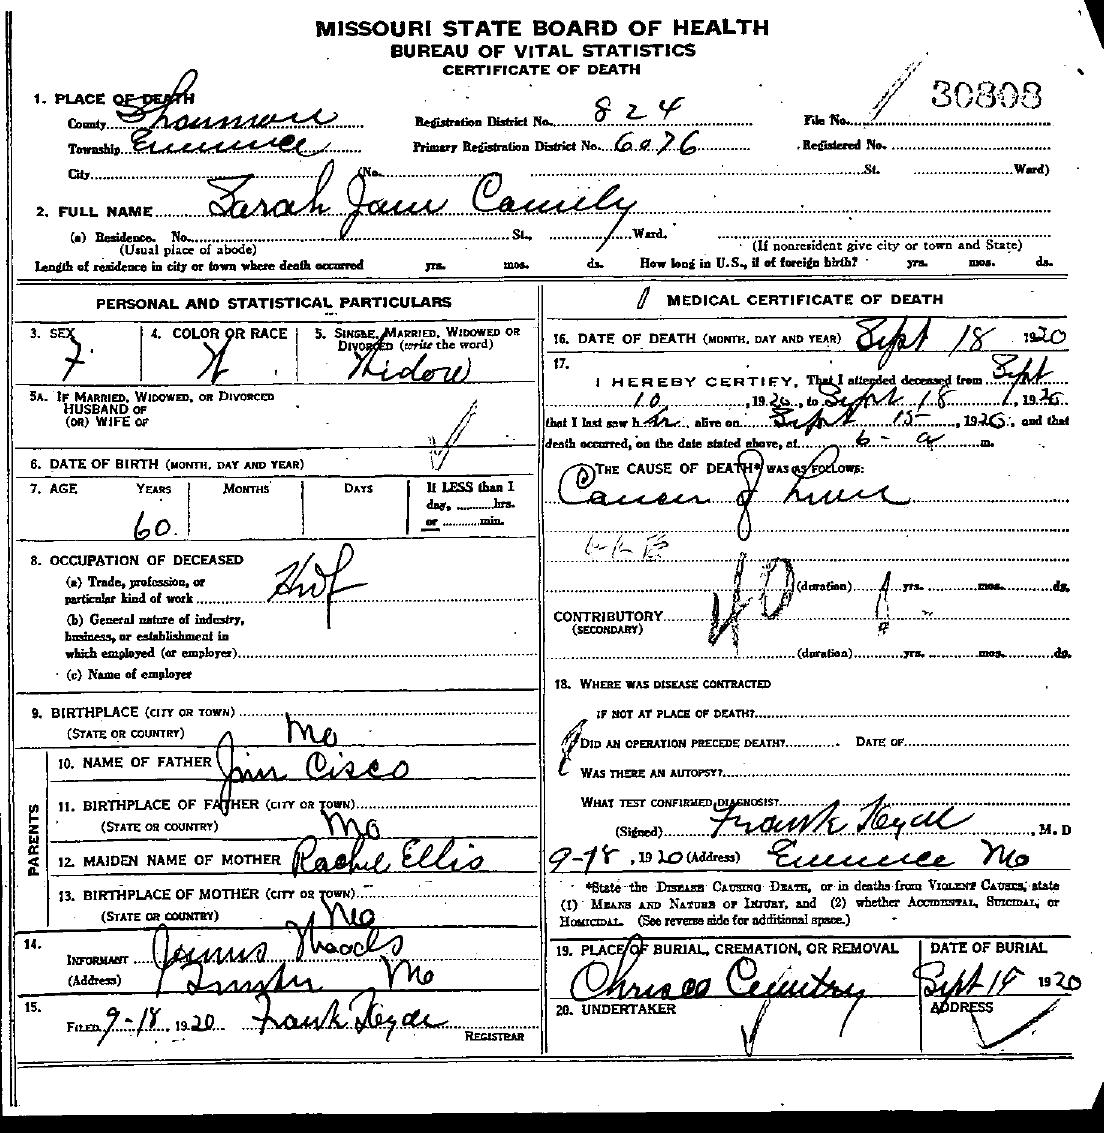 MISSOURI STATE BOARD OF HEALTH
BUREAU OF VITAL STATISTICS
CERTIFICATE OF DEATH
30808
1. PLACE OF DEATH
County Shannon Registration District No. 824 File No.
Township Eminence Primary Registration District No. 6076 Registered No.
City (No. St. Ward)
2. FULL NAME Sarah Jane
(a) Residence. No. St., Ward.
(Usual place of abode) (If nonresident give city or town and State)
Length of residence in city or town where death occurred yrs. mos. ds. How long in U.S., if of foreign birth? yrs. mos. ds.
PERSONAL AND STATISTICAL PARTICULARS
3. SEX 4. COLOR OR RACE 5. SINGLE, MARRIED, WIDOWED OR
DIVORCED (write the word)
F. W Widow
5A. IF MARRIED, WIDOWED, OR DIVORCED
HUSBAND OF
(OR) WIFE OF
6. DATE OF BIRTH (MONTH, DAY AND YEAR)
7. AGE YEARS MONTHS DAYS If LESS than 1
day, hrs.
or min.
60
8. OCCUPATION OF DECEASED
(a) Trade, profession, or
particular kind of work Hwf
(b) General nature of industry,
business, or establishment in
which employed (or employer)
(c) Name of employer
9. BIRTHPLACE (CITY OR TOWN)
(STATE OR COUNTRY) Mo
PARENTS
10. NAME OF FATHER Jim Cisco
11. BIRTHPLACE OF FATHER (CITY OR TOWN)
(STATE OR COUNTRY) Mo
12. MAIDEN NAME OF MOTHER Rachel Ellis
13. BIRTHPLACE OF MOTHER (CITY OR TOWN)
(STATE OR COUNTRY) Mo
14.
INFORMANT
(Address) Mo
15.
FILED 9-18, 1920 Frank Hyde
REGISTRAR
MEDICAL CERTIFICATE OF DEATH
16. DATE OF DEATH (MONTH, DAY AND YEAR) Sept 18 1920
17.
I HEREBY CERTIFY, That I attended deceased from Sept
10, 1920, to Sept 18, 1920
that I last saw her alive on Sept 15-, 1920, and that
death occurred, on the date stated above, at 6- a m.
THE CAUSE OF DEATH* WAS AS FOLLOWS:
Cancer of Liver
40
(duration) yrs. mos. ds.
CONTRIBUTORY
(SECONDARY)
(duration) yrs. mos. ds.
18. WHERE WAS DISEASE CONTRACTED
IF NOT AT PLACE OF DEATH?
DID AN OPERATION PRECEDE DEATH? DATE OF
WAS THERE AN AUTOPSY?
WHAT TEST CONFIRMED DIAGNOSIS?
(Signed) Frank Hyde, M. D
9-18, 1920 (Address) Eminence Mo
*State the DISEASE CAUSING DEATH, or in deaths from VIOLENT CAUSES, state
(1) MEANS AND NATURE OF INJURY, and (2) whether ACCIDENTAL, SUICIDAL, or
HOMICIDAL. (See reverse side for additional space.)
19. PLACE OF BURIAL, CREMATION, OR REMOVAL DATE OF BURIAL
Cemetry Sept 19 1920
20. UNDERTAKER ADDRESS